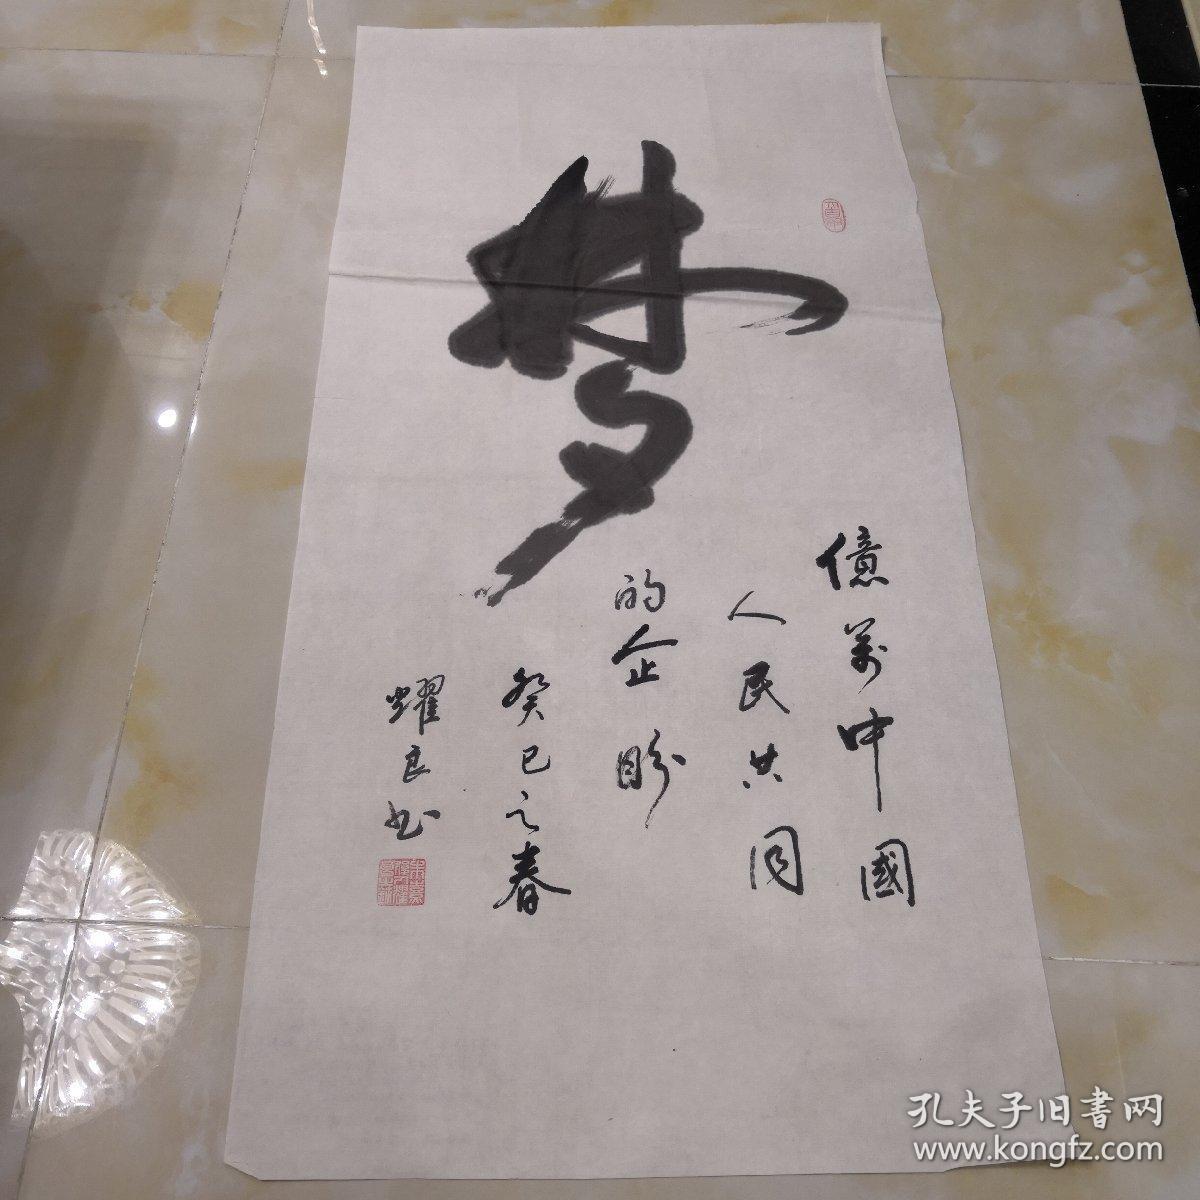 夢
億萬中國
人民共同
的企盼
癸巳之春
耀良书
孔夫子旧书网
www.kongfz.com